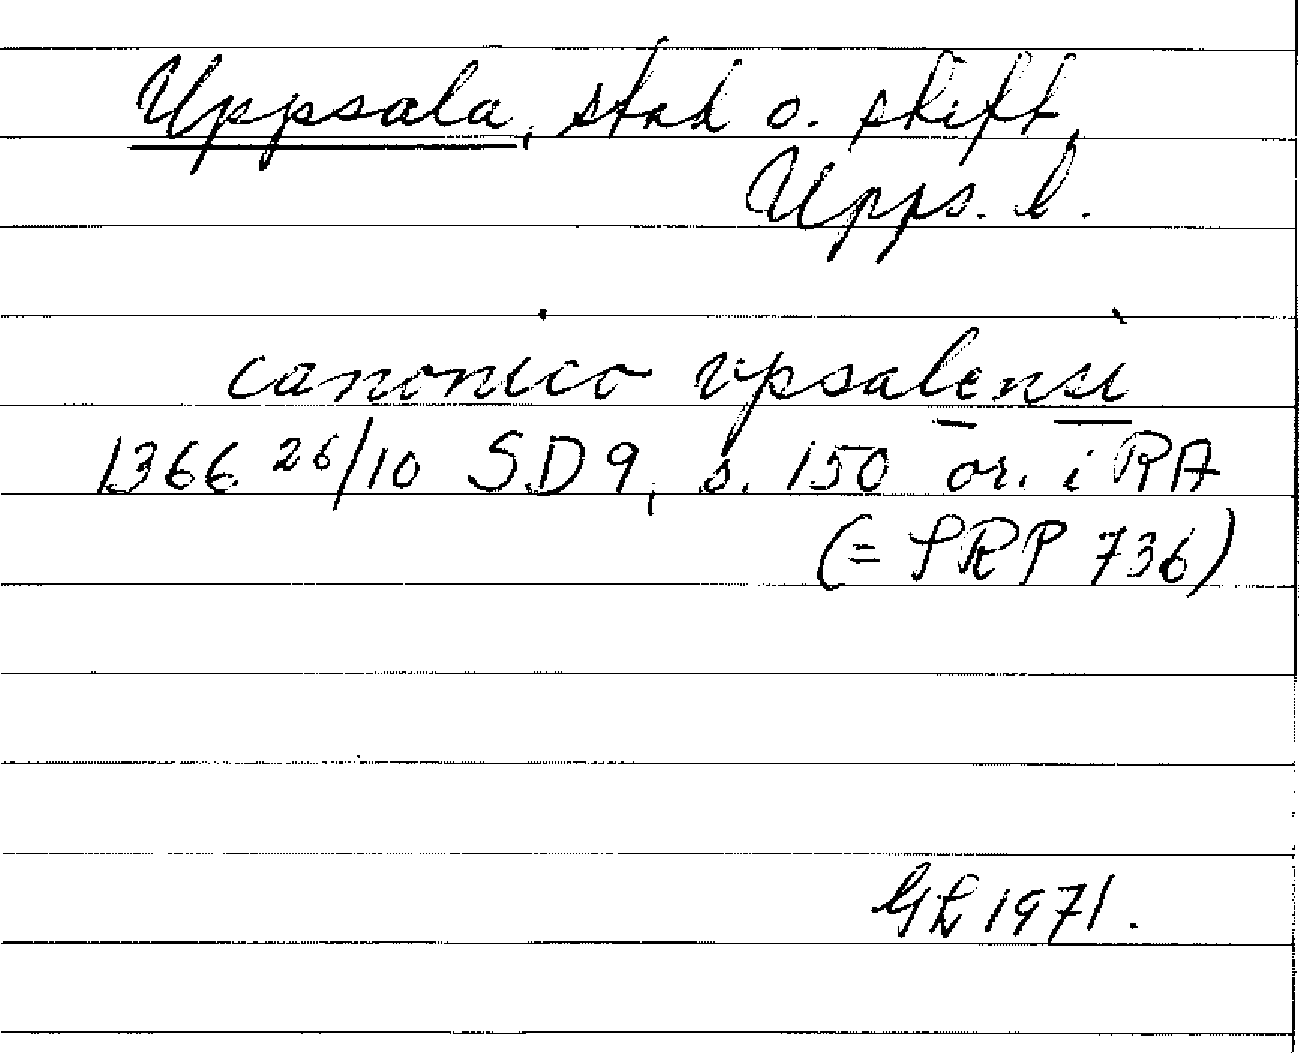 Uppsala, stad o. stift,
Upps. l.
canonico vpsalensi
1366 26/10 SD 9, s. 150 or. i RA
(= SRP 736)
GL 1971.